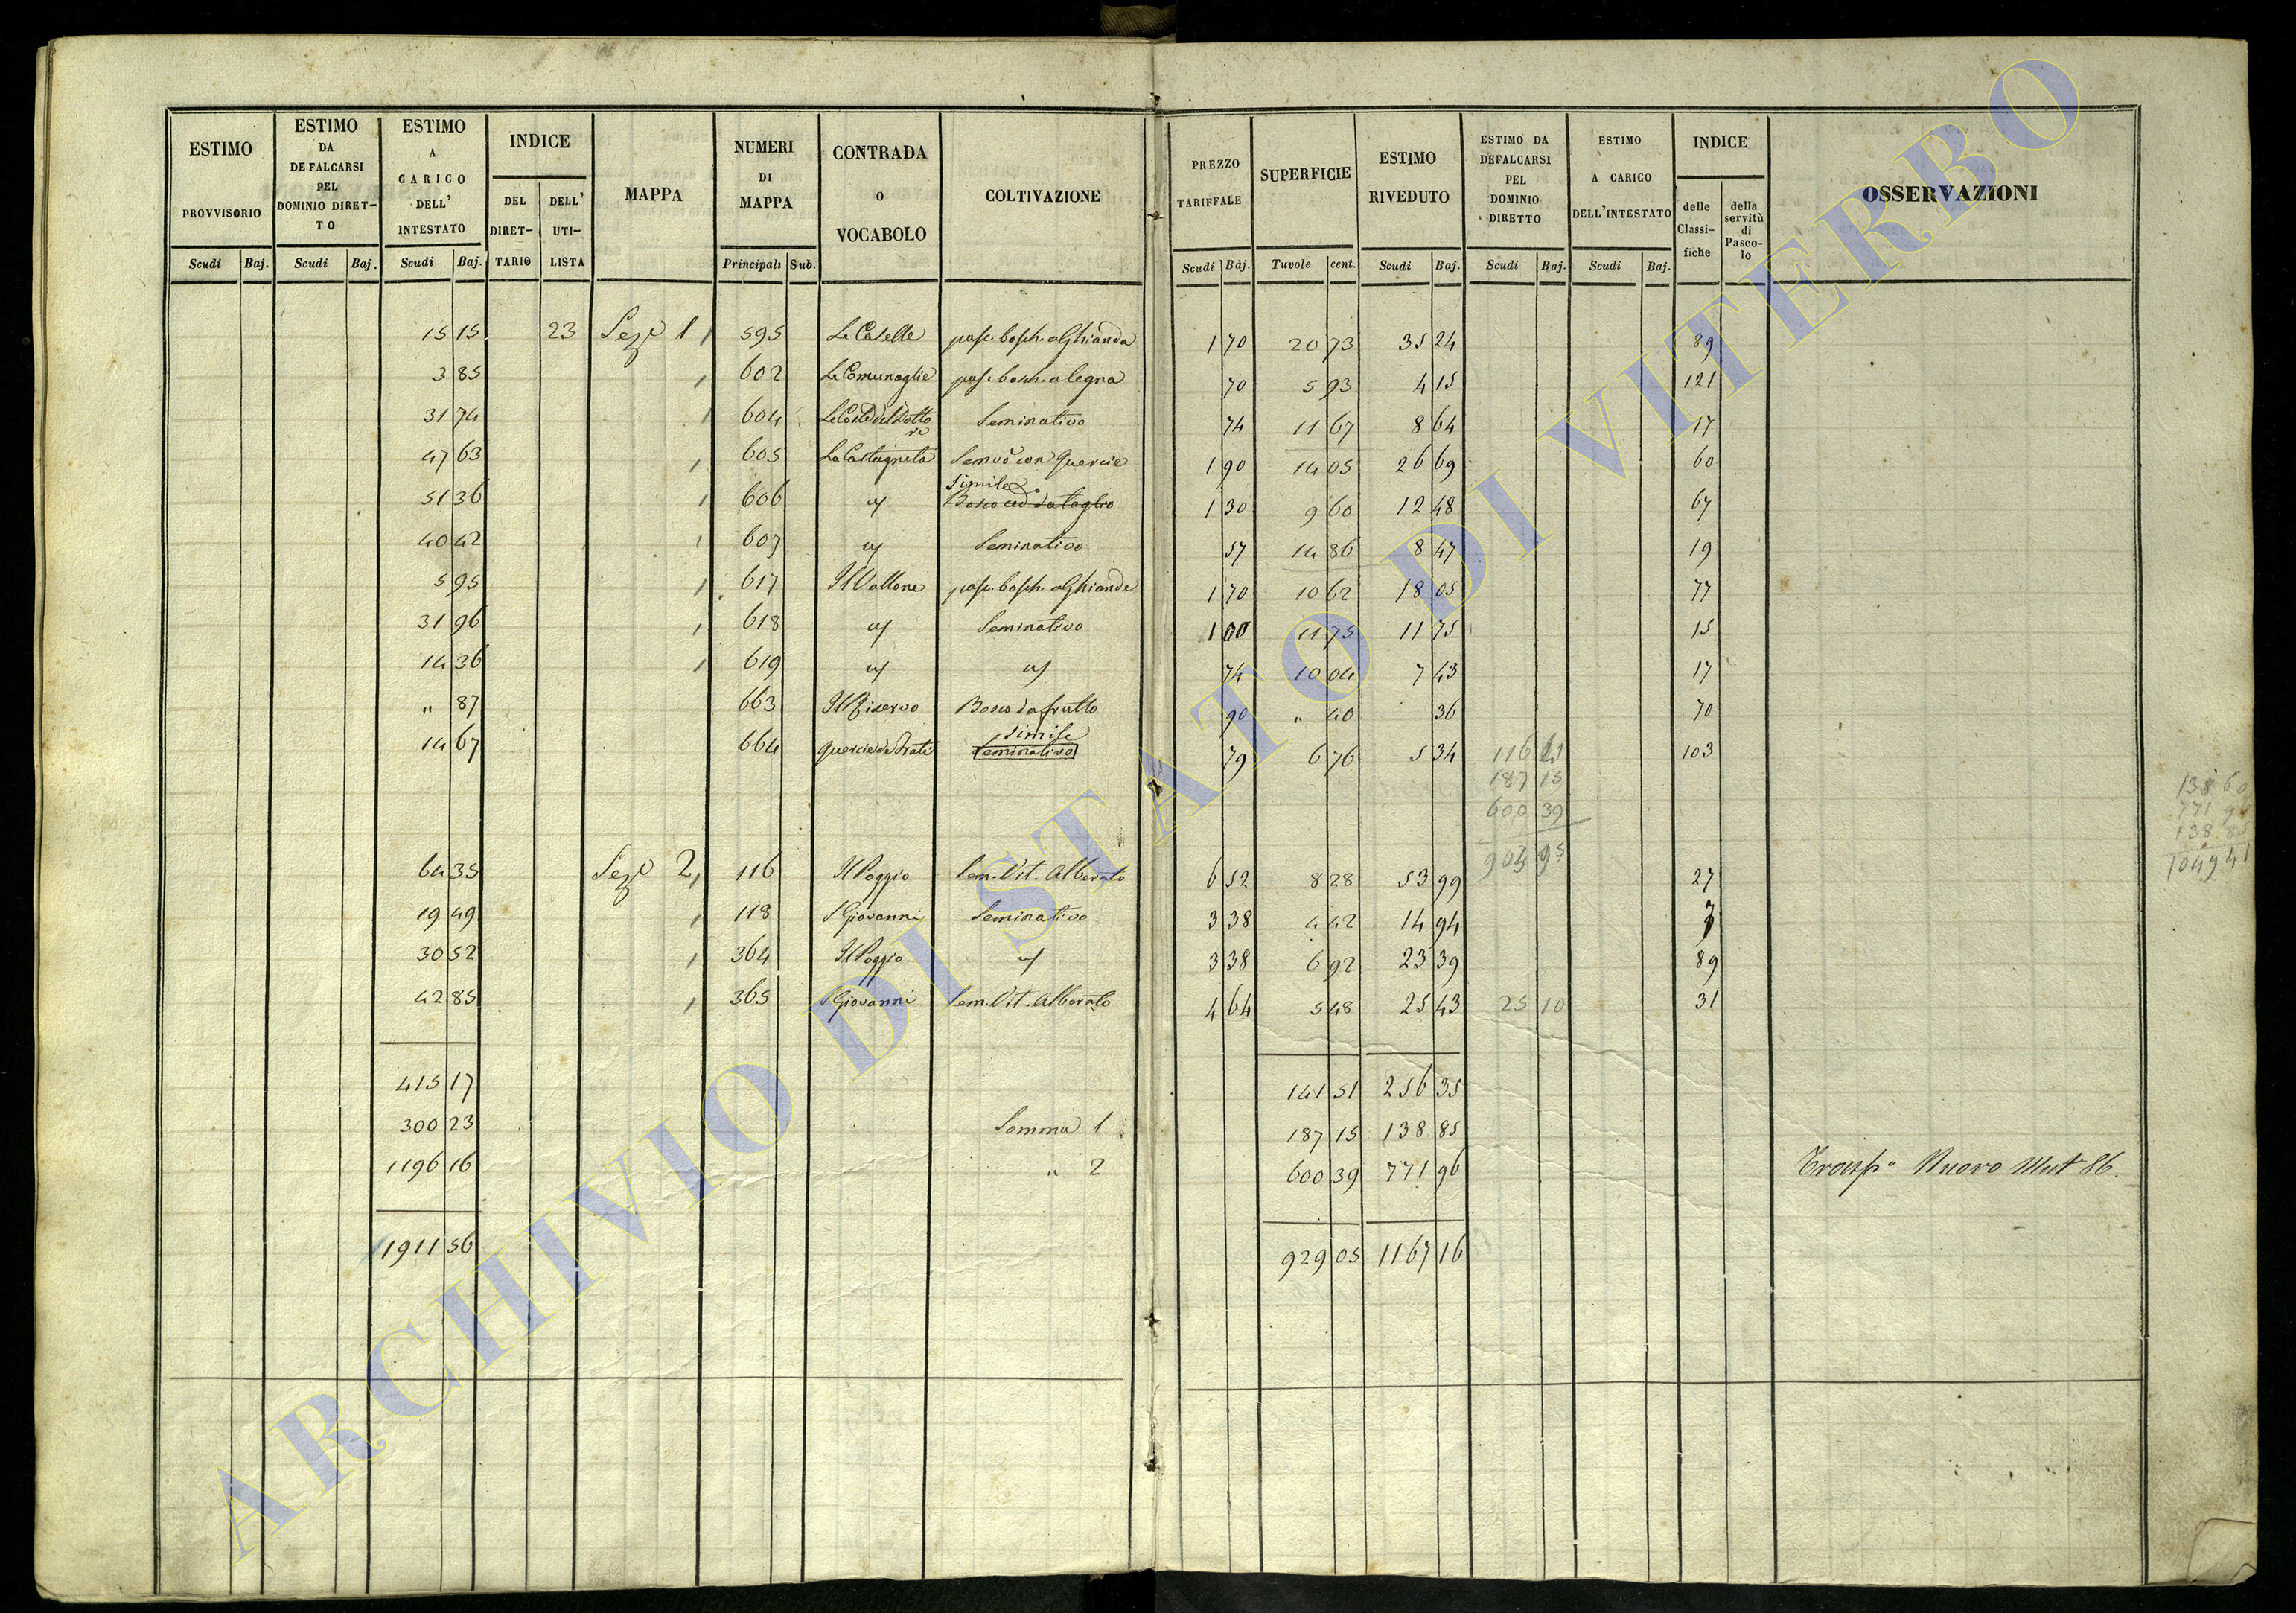 ESTIMO PROVVISORIO Scudi Baj.
ESTIMO DA DEFALCARSI PEL DOMINIO DIRET-TO Scudi Baj.
ESTIMO A CARICO DELL' INTESTATO Scudi Baj.
INDICE DEL DIRET-TARIO DELL' UTI-LISTA
MAPPA
NUMERI DI MAPPA Principali Sub.
CONTRADA O VOCABOLO
COLTIVAZIONE
PREZZO TARIFFALE Scudi Baj.
SUPERFICIE Tavole cent.
ESTIMO RIVEDUTO Scudi Baj.
ESTIMO DA DEFALCARSI PEL DOMINIO DIRETTO Scudi Baj.
ESTIMO A CARICO DELL'INTESTATO Scudi Baj.
INDICE delle Classi-fiche della servitù di Pasco-lo
OSSERVAZIONI
15 15 23 Sez.e 1, 595 Le Caselle pasc. bosch. a Ghianda 1 70 20 73 35 24 89
3 85 , 602 Le Comunaglie pasc. bosch. a legna 70 5 93 4 15 121
31 74 , 604 Seminativo 74 11 67 8 64 17
47 63 , 605 La Castagneta Semvo con Quercie 1 90 14 05 26 69 60
Simile
51 36 , 606 " Bosco ced.o da taglio 1 30 9 60 12 48 67
40 42 , 607 " Seminativo 57 14 86 8 47 19
5 95 , 617 Il Vallone pasc. bosch. a Ghiande 1 70 10 62 18 05 77
31 96 , 618 " Seminativo 1 00 11 75 11 75 15
14 36 , 619 " " 74 10 04 7 43 17
" 87 663 Il Riservo Bosco da frutto 90 " 40 36 70
Simile
14 67 664 Quercie de Frati Seminativo 79 6 76 5 34 116 103
187 15
600 39
904 95
138 60
771 96
138 85
1049 41
64 35 Sez.e 2, 116 Il Poggio Sem. Vit. Alberato 6 52 8 28 53 99 27
19 49 , 118 S Giovanni Seminativo 3 38 4 42 14 94 7
30 52 , 364 Il Poggio " 3 38 6 92 23 39 89
42 85 , 365 S Giovanni Sem. Vit. Alberato 4 64 5 48 25 43 25 10 31
415 17 141 51 256 35
300 23 Somma 1 187 15 138 85
1196 16 " 2 600 39 771 96 Trasp.o Nuovo Mut 86.
1911 56 929 05 1167 16
ARCHIVIO DI STATO DI VITERBO